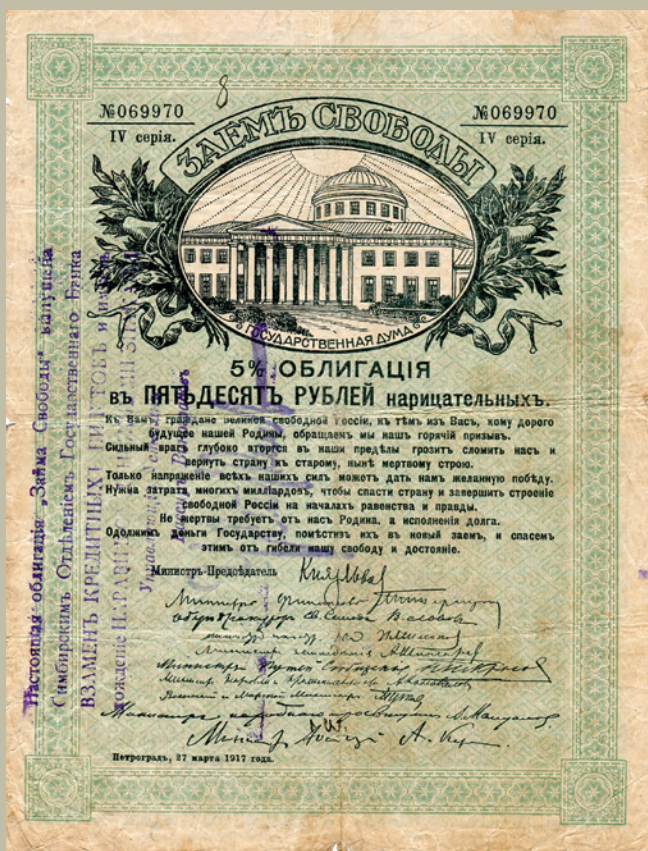 8
№069970
IV серія.
№069970
IV серія.
ЗАЕМЪ СВОБОДЫ
ГОСУДАРСТВЕННАЯ ДУМА
5% ОБЛИГАЦІЯ
въ ПЯТЬДЕСЯТЪ РУБЛЕЙ нарицательныхъ.
Къ Вамъ, граждане великой свободной Россіи, къ тѣмъ изъ Васъ, кому дорого
будущее нашей Родины, обращаемъ мы нашъ горячій призывъ.
Сильный врагъ глубоко вторгся въ наши предѣлы грозитъ сломить насъ и
вернуть страну къ старому, нынѣ мертвому строю.
Только напряженіе всѣхъ нашихъ силъ можетъ дать намъ желанную побѣду.
Нужна затрата многихъ милліардовъ, чтобы спасти страну и завершить строеніе
свободной Россіи на началахъ равенства и правды.
Не жертвы требуетъ отъ насъ Родина, а исполненія долга.
Одолжимъ деньги Государству, помѣстивъ ихъ въ новый заемъ, и спасемъ
этимъ отъ гибели нашу свободу и достояніе.
Министръ-Предсѣдатель Кн. Львов
Министръ финансовъ
Оберъ-Прокуроръ Св. Синода В. Львовъ
Министръ земледѣлія А. Шингаревъ
Министръ Путей Сообщенія Н. Некрасовъ
Военный и Морской Министръ
Министръ народнаго просвѣщенія А. Мануйлов
Министръ Юстиціи А. Кер
Петроградъ, 27 марта 1917 года.
Настоящая облигація „Займа Свободы" выпущена
Симбирскимъ Отдѣленіемъ Государственнаго Банка
ВЗАМЕНЪ КРЕДИТНЫХЪ БИЛЕТОВЪ и имѣетъ
хожденіе НАРАВНѢ
Управляющій